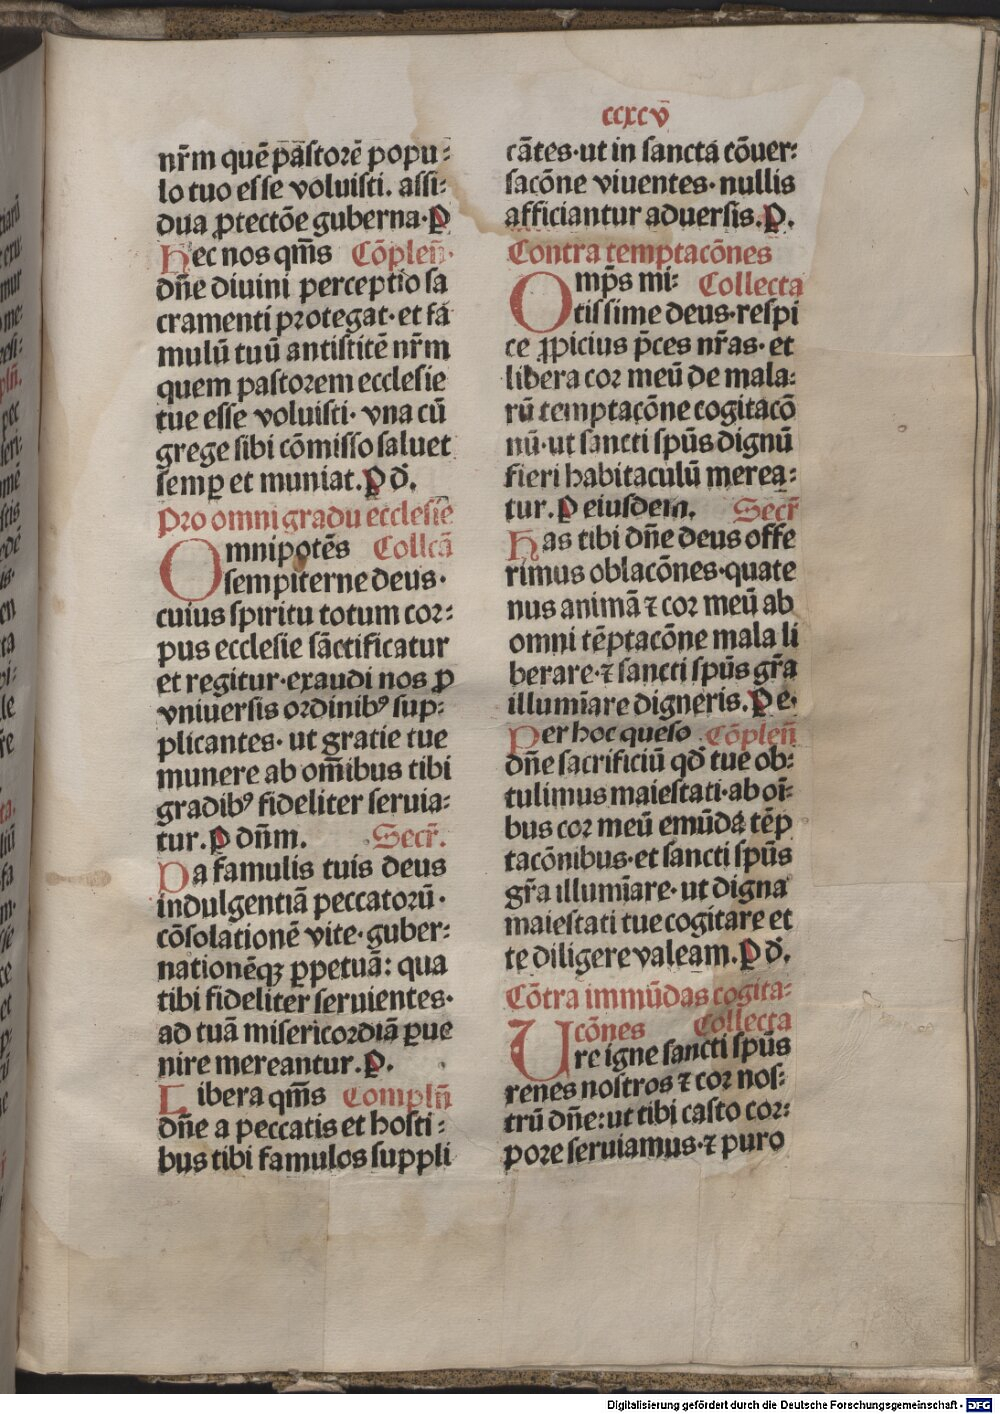 ccxcv̄
nr̄m quē pāstorē popu⸗
lo tuo esse voluisti. assi⸗
dua ꝓtectōe guberna·P̲
Hec nos qm̄s Cōplen̄·
dn̄e diuini perceptio sa
cramenti protegat·et fa
mulū tuū antistitē nr̄m
quem pastorem ecclesie
tue esse voluisti· vna cū
grege sibi cōmisso saluet
semꝑ et muniat.P̲ d̄.
Pro omni gradu ecclesie
Omnipotēs Collcā
sempiterne deus·
cuius spiritu totum cor⸗
pus ecclesie sāctificatur
et regitur·exaudi nos ꝓ
vniuersis ordinibꝰ sup⸗
plicantes· ut gratie tue
munere ab om̄ibus tibi
gradibꝰ fideliter seruia⸗
tur.P̲ dn̄m. Secr̄.
Da famulis tuis deus
indulgentiā peccatorū·
cōsolationē vite·guber⸗
nationēqꝫ ꝑpetuā: qua
tibi fideliter seruientes·
ad tuā misericordiā ꝑue
nire mereantur.P̲.
Libera qm̄s Compln̄
dn̄e a peccatis et hosti⸗
bus tibi famulos suppli
cātes·ut in sancta cōuer⸗
sacōne viuentes·nullis
afficiantur aduersis.P̲.
Contra temptacōnes
Omp̄s mi⸗ Collecta
tissime deus·respi
ce ꝓpicius p̄ces nr̄as·et
libera cor meū de mala⸗
rū temptacōne cogitacō
nū·ut sancti sp̄us dignū
fieri habitaculū merea⸗
tur.P̲ eiusdem. Secr̄
Has tibi dn̄e deus offe
rimus oblacōnes·quate
nus animā ⁊ cor meū ab
omni tēptacōne mala li
berare·⁊ sancti sp̄us gr̄a
illumīare digneris.P̲ e·
Per hoc queso Cōplen̄
dn̄e sacrificiū qd̄ tue ob⸗
tulimus maiestati·ab oī⸗
bus cor meū emūda tēp
tacōnibus·et sancti sp̄us
gr̄a illumīare·ut digna
maiestati tue cogitare et
te diligere valeam.P̲ d̄.
Cōtra immūdas cogita⸗
cōnes Collecta
Ure igne sancti sp̄us
renes nostros ⁊ cor nos⸗
trū dn̄e:ut tibi casto cor⸗
pore seruiamus·⁊ puro
Digitalisierung gefördert durch die Deutsche Forschungsgemeinschaft - DFG